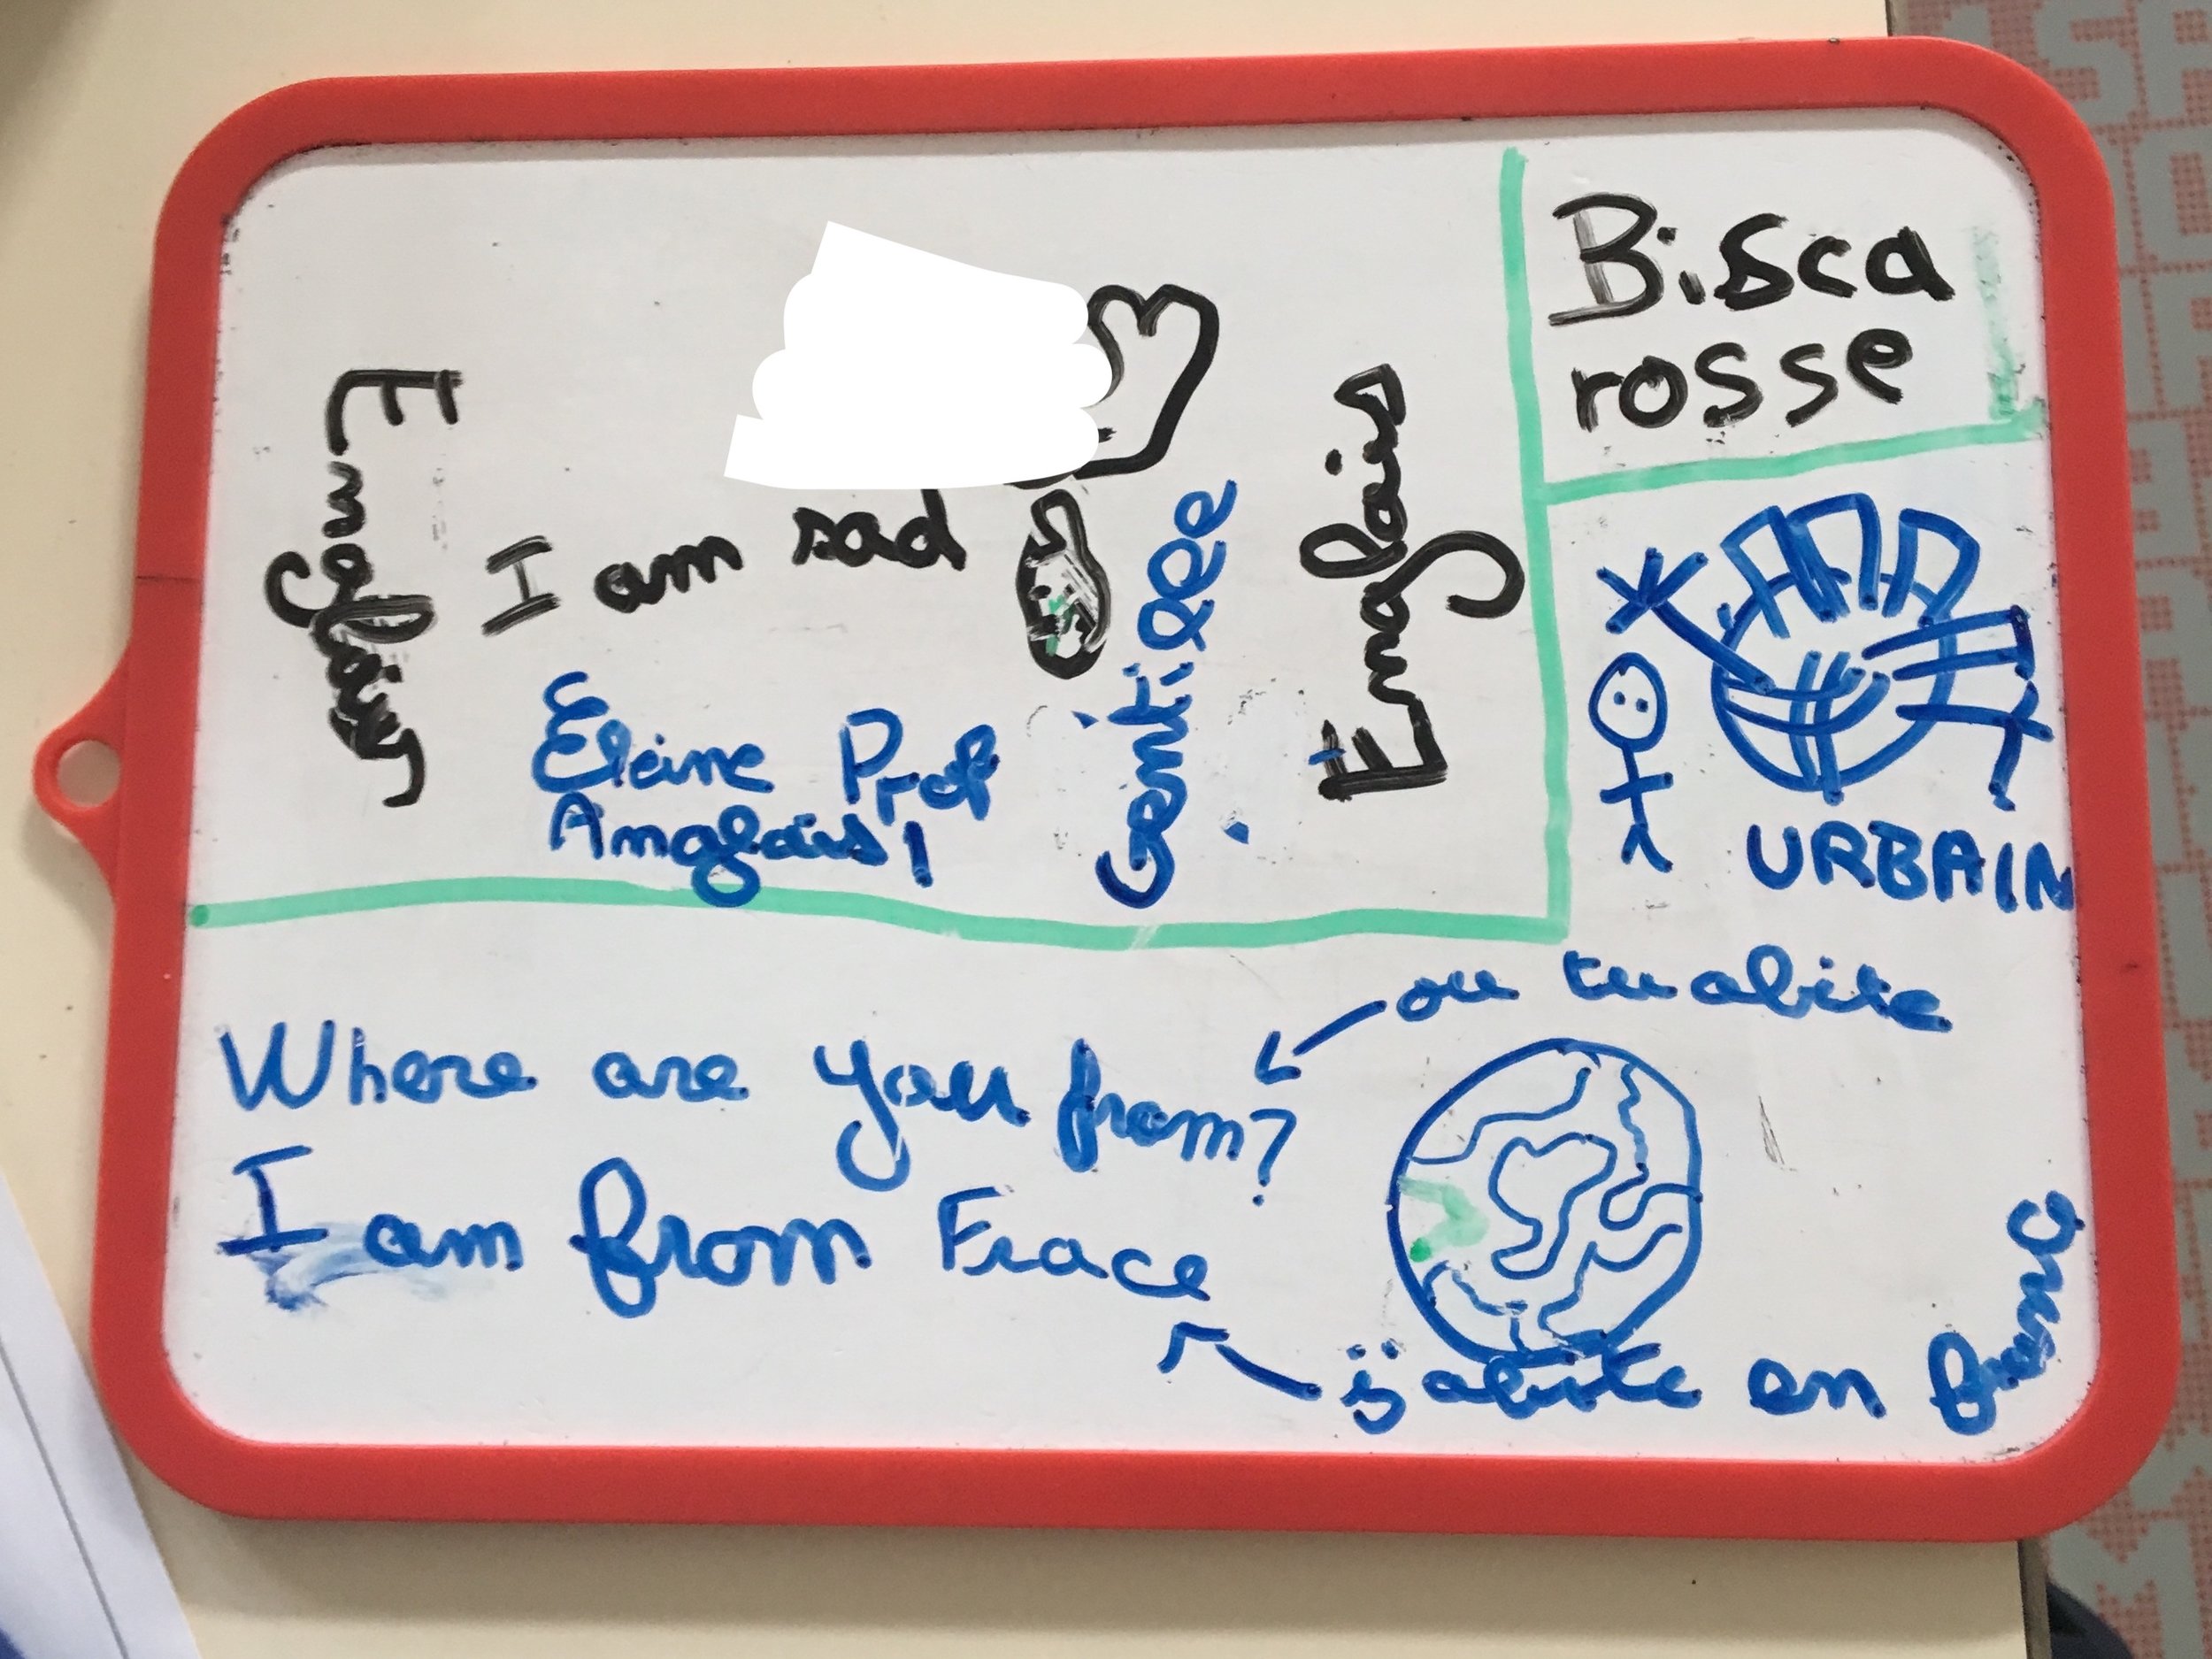 Englais
I am sad
Elaine Prof
Anglais !
Gentille
Englais
Bisca
rosse
URBAIN
ou tu abite
Where are you from?
I am from Frace
j abite en